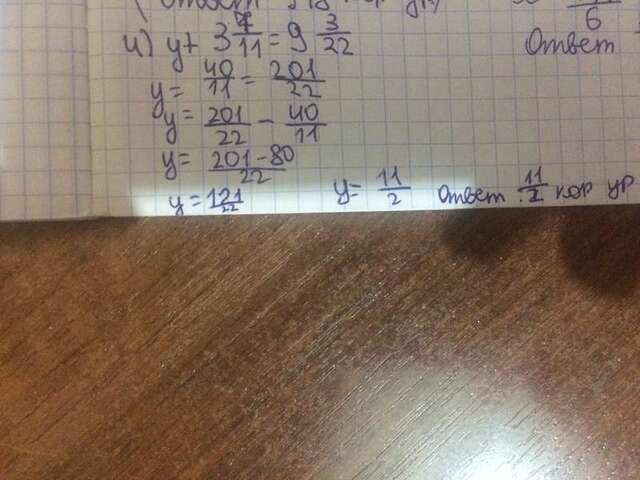 и) y + 3 7/11 = 9 3/22
Ответ
6
y = 40/11 = 201/22
y = 201/22 - 40/11
y = (201-80)/22
y = 121/22 y = 11/2 Ответ : 11/2 кор ур